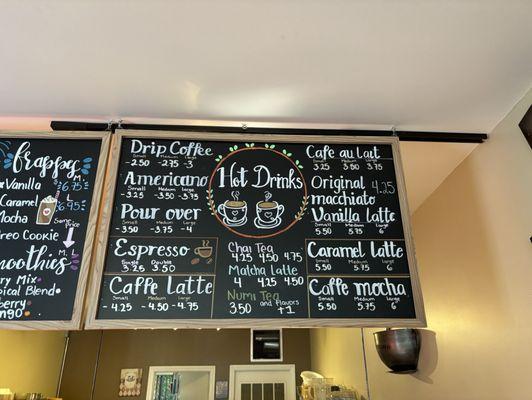 frappes
Vanilla
M. L
6.75
Caramel
Mocha
6.95
Same
price
Cookie
M. L
Smoothies
Blend
Drip Coffee
Small Medium large
-2.50 -2.75 -3
Americano
Small Medium Large
-3.25 -3.50 -3.75
Pour over
Small Medium Large
-3.50 -3.75 -4
Espresso
Single Double
3.25 3.50
Caffe Latte
Small Medium Large
-4.25 -4.50 -4.75
Hot Drinks
Chai Tea
4.25 4.50 4.75
Matcha latte
4 4.25 4.50
Numi Tea and Flavors
3.50 +1
Cafe au lait
Small Medium Large
3.25 3.50 3.75
Original 4.25
macchiato
Vanilla latte
Small Medium Large
5.50 5.75 6
Caramel Latte
Small Medium Large
5.50 5.75 6
Caffe mocha
Small Medium Large
5.50 5.75 6